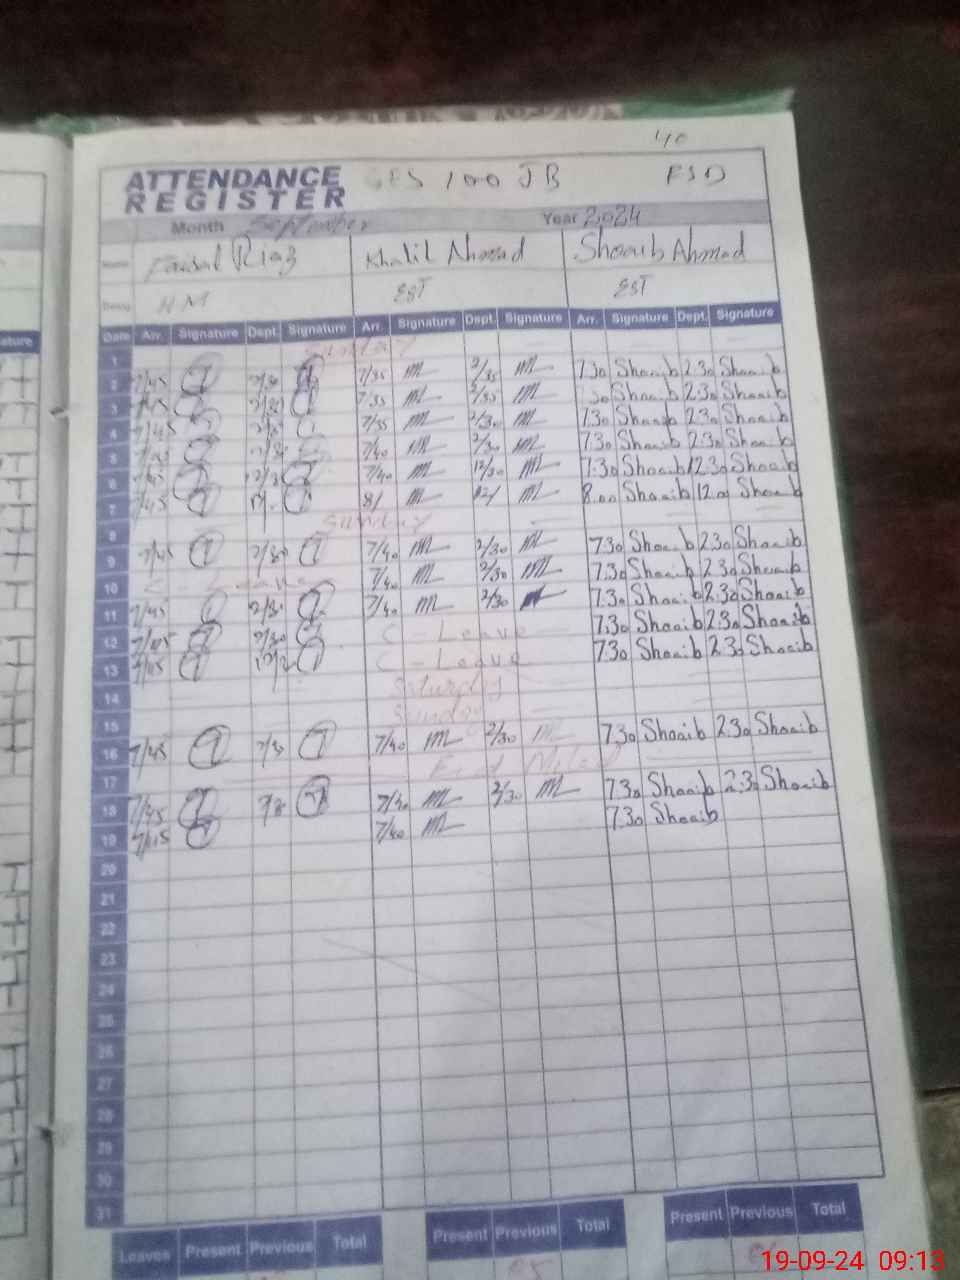 40
ATTENDANCE REGISTER GES 100 JB FSD
Month September Year 2024
Name Faisal Riaz Khalil Ahmad Shoaib Ahmad
Desig. H.M EST EST
Date Arr. Signature Dept. Signature Arr. Signature Dept. Signature Arr. Signature Dept. Signature
1 Sunday
2 7/45 2/30 7/35 2/35 7.30 Shoaib 2.30 Shoaib
3 7/45 2/30 7/35 2/35 30 Shoaib 2.30 Shoaib
4 7/45 7/35 2/30 7.30 Shoaib 2.30 Shoaib
5 7/40 2/30 7.30 Shoaib 2.30 Shoaib
6 7/45 12/30 7/40 12/30 7:30 Shoaib 12.30 Shoaib
7 7/45 8/ 12/ 8.00 Shoaib 12.00 Shoaib
8 Sunday
9 7/45 2/30 7/40 2/30 7.30 Shoaib 2.30 Shoaib
10 Leave 7/40 2/30 7.30 Shoaib 2.30 Shoaib
11 7/45 2/30 7/40 2/30 7.30 Shoaib 2.30 Shoaib
12 2/30 C - Leave 7.30 Shoaib 2.30 Shoaib
13 C - Leave 7.30 Shoaib 2.30 Shoaib
14 Saturday
15 Sunday
16 7/45 2/30 7/40 2/30 7.30 Shoaib 2.30 Shoaib
17 Eid Milad
18 7/45 7/40 2/30 7.30 Shoaib 2.30 Shoaib
19 7/40 7.30 Shoaib
20
21
22
23
24
25
26
27
28
29
30
31
Leaves Present Previous Total Present Previous Total Present Previous Total
19-09-24 09:13